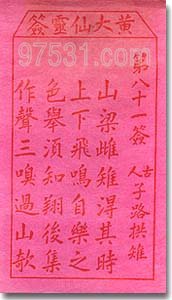 黃大仙靈簽
97531.com
第八十一簽
古人子路拱雉
山梁雌雉淂其時
上下飛鳴自樂之
色舉湏知翔後集
作聲三嗅過山欹